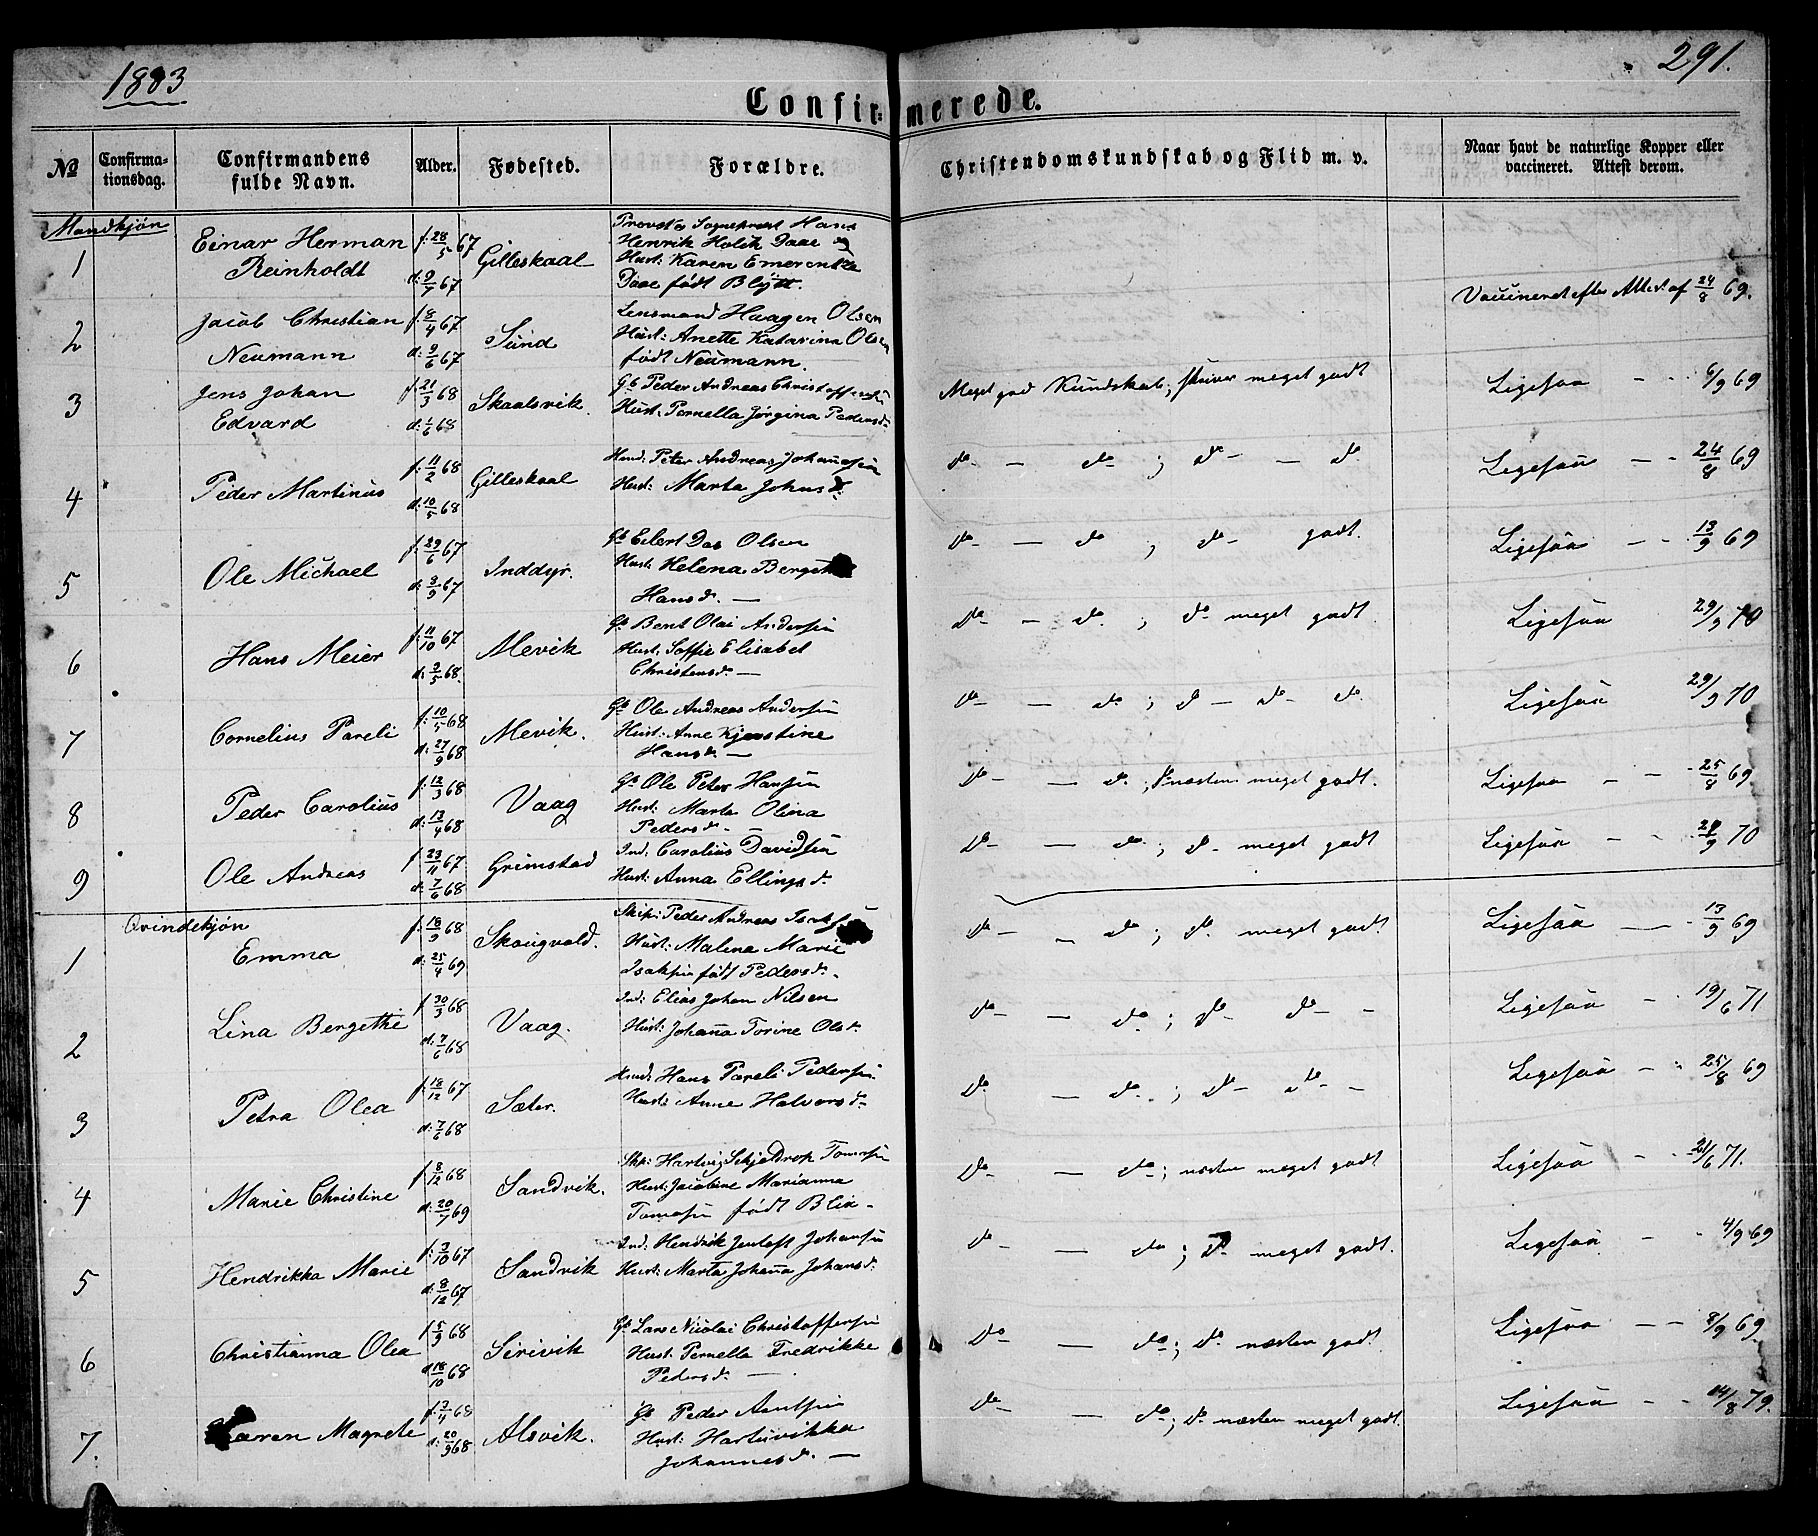 1883
291.
Confirmerede.
No
Confirmationsdag.
Confirmandens fulde Navn.
Alder.
Fødested.
Forældre.
Christendomskundskab og Flid m. v.
Naar havt de naturlige Kopper eller vaccineret. Attest derom.
Mandkjøn
1 Einar Herman Reinholdt f. 28/5 67 d: 9/7 67 Gilleskaal Provst & Sogneprest Hans Henrik Holck Daae og Hust: Karen Emerentze Daae født Blytt. Vaccineret efter Attest af 24/8 69.
2 Jacob Christian Neumann f. 8/4 67 d: 9/6 67 Sund Lensmand Haagen Olsen Hust: Anette Katarina Olsen født Neumann.
3 Jens Johan Edvard f. 21/3 68 d: 1/6 68 Skaalsvik. Gb Peder Andreas Christoffersen Hust: Pernella Jørgina Pedersd. Meget god Kundskab; skriver meget godt Ligesaa — 6/9 69
4 Peder Martinus f. 11/2 68 d: 10/5 68 Gilleskaal Hmd: Peter Andreas Johannesen Hust: Marta Johnsd. do — do ; do — do Ligesaa — 24/8 69
5 Ole Michael f. 29/6 67 d: 3/9 67 Inddyr. Gb Eilert Das Olsen Hust: Helena Bergethe Hansd. — do — do ; do — godt. Ligesaa — 13/9 69
6 Hans Meier f. 11/10 67 d: 3/5 68. Mevik Gb Bent Olai Andersen Hust: Soffie Elisabet Christensd. — do — do ; do meget godt. Ligesaa 29/9 70
7 Cornelius Pareli f. 10/5 68 d: 27/9 68 Mevik. Gb Ole Andreas Andersen Hust: Anne Kjerstine Hansd. — do — do ; do — do — do Ligesaa 29/9 70
8 Peder Carolius f. 12/3 68 d: 13/4 68 Vaag Gb Ole Peter Hansen Hust: Marta Olina Pedersd. — do — do ; næsten meget godt. Ligesaa — 25/8 69
9 Ole Andreas f. 23/11 67. d: 7/6 68 Grimstad Ind: Carolius Davidsen Hust: Anna Ellingsd. do — do ; do meget godt Ligesaa — 29/9 70
Qvindekjøn
1 Emma f. 18/9 68 d: 25/4 69 Skaugvold. Skip: Peder Andreas Hust: Malena Marie Isaksen født Pedersd. do — do ; do meget godt Ligesaa — 13/9 69
2 Lina Bergethe f. 30/3 68 d: 7/6 68 Vaag. Ind: Elias Johan Nilsen Hust: Johanna Torine Olsd. do — do ; do do — Ligesaa — 19/6 71
3 Petra Olea f. 18/12 67 d: 7/6 68 Sæter. Hmd: Hans Pareli Pedersen. Hust: Anne Halvorsd. do — do ; do — do — Ligesaa — 25/8 69
4 Marie Christine f. 8/12 68 d: 20/7 69 Sandvik. Skip: Hartvig Schjeldrop Tomesen Hust: Jacobine Marianna Tomesen født Blix — do — do ; næsten meget godt Ligesaa — 21/6 71.
5 Hendrikka Marie f. 3/10 67 d: 8/12 67 Sandvik Ind: Hendrik Jentoft Johansen Hust: Marta Johanna Johansd. do — do ; do meget godt. Ligesaa — 4/9 69
6 Christianna Olea f 5/9 68 d: 18/10 68 Serivik Gb Lars Nicolai Christoffersen Hust: Pernella Fredrikke Pedersd. — do — do ; do næsten godt. Ligesaa — 8/9 69
7. Karen Magrete f. 3/4 68 d: 20/9 68 Alsvik. Gb Peder Hust: Hartvikka Johannesd. — do — do ; do næsten meget godt. Ligesaa — 14/8 79.